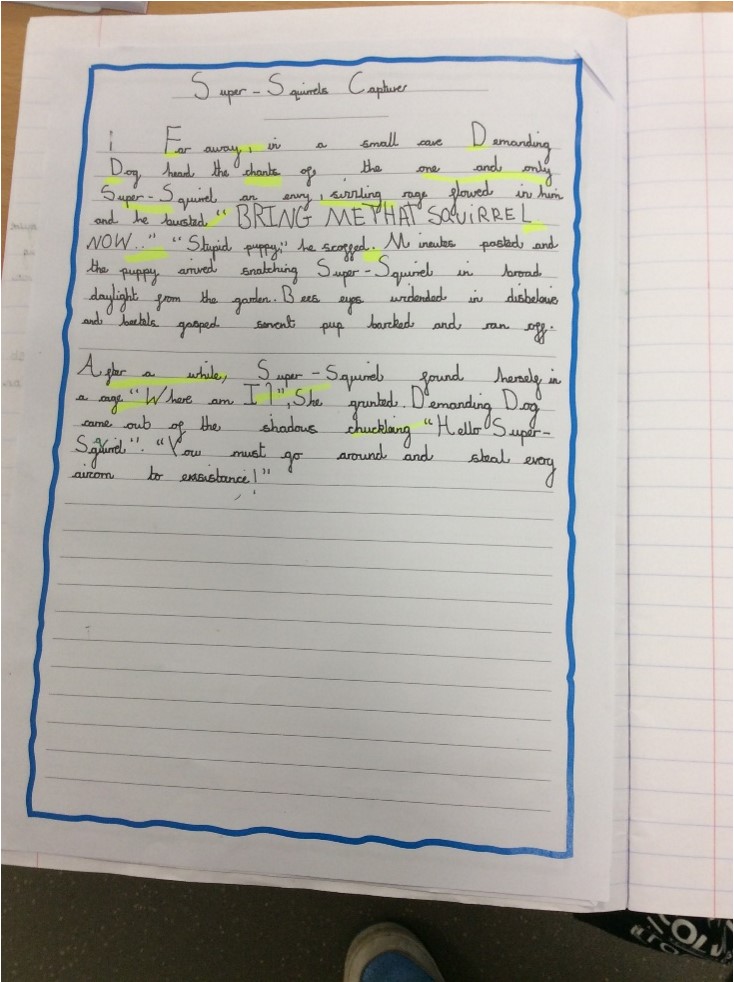 Super-Squirrels Capture
Far away, in a small cave Demanding
Dog heard the chants of the one and only
Super-Squirrel an envy, sizzling rage flowed in him
and he bursted "BRING ME THAT SQUIRREL
NOW.." "Stupid puppy," he scoffed. Minutes posted and
the puppy arrived snatching Super-Squirrel in broad
daylight from the garden. Bees eyes widended in disbelive
and beetels gasped servent pup barcked and ran off.
After a while, Super-Squirrel found herself in
a cage "Where am I?", She grunted. Demanding Dog
came out of the shadows chuckling "Hello Super-
Squirrel". "You must go around and steal every
aircorn to exsistance!"